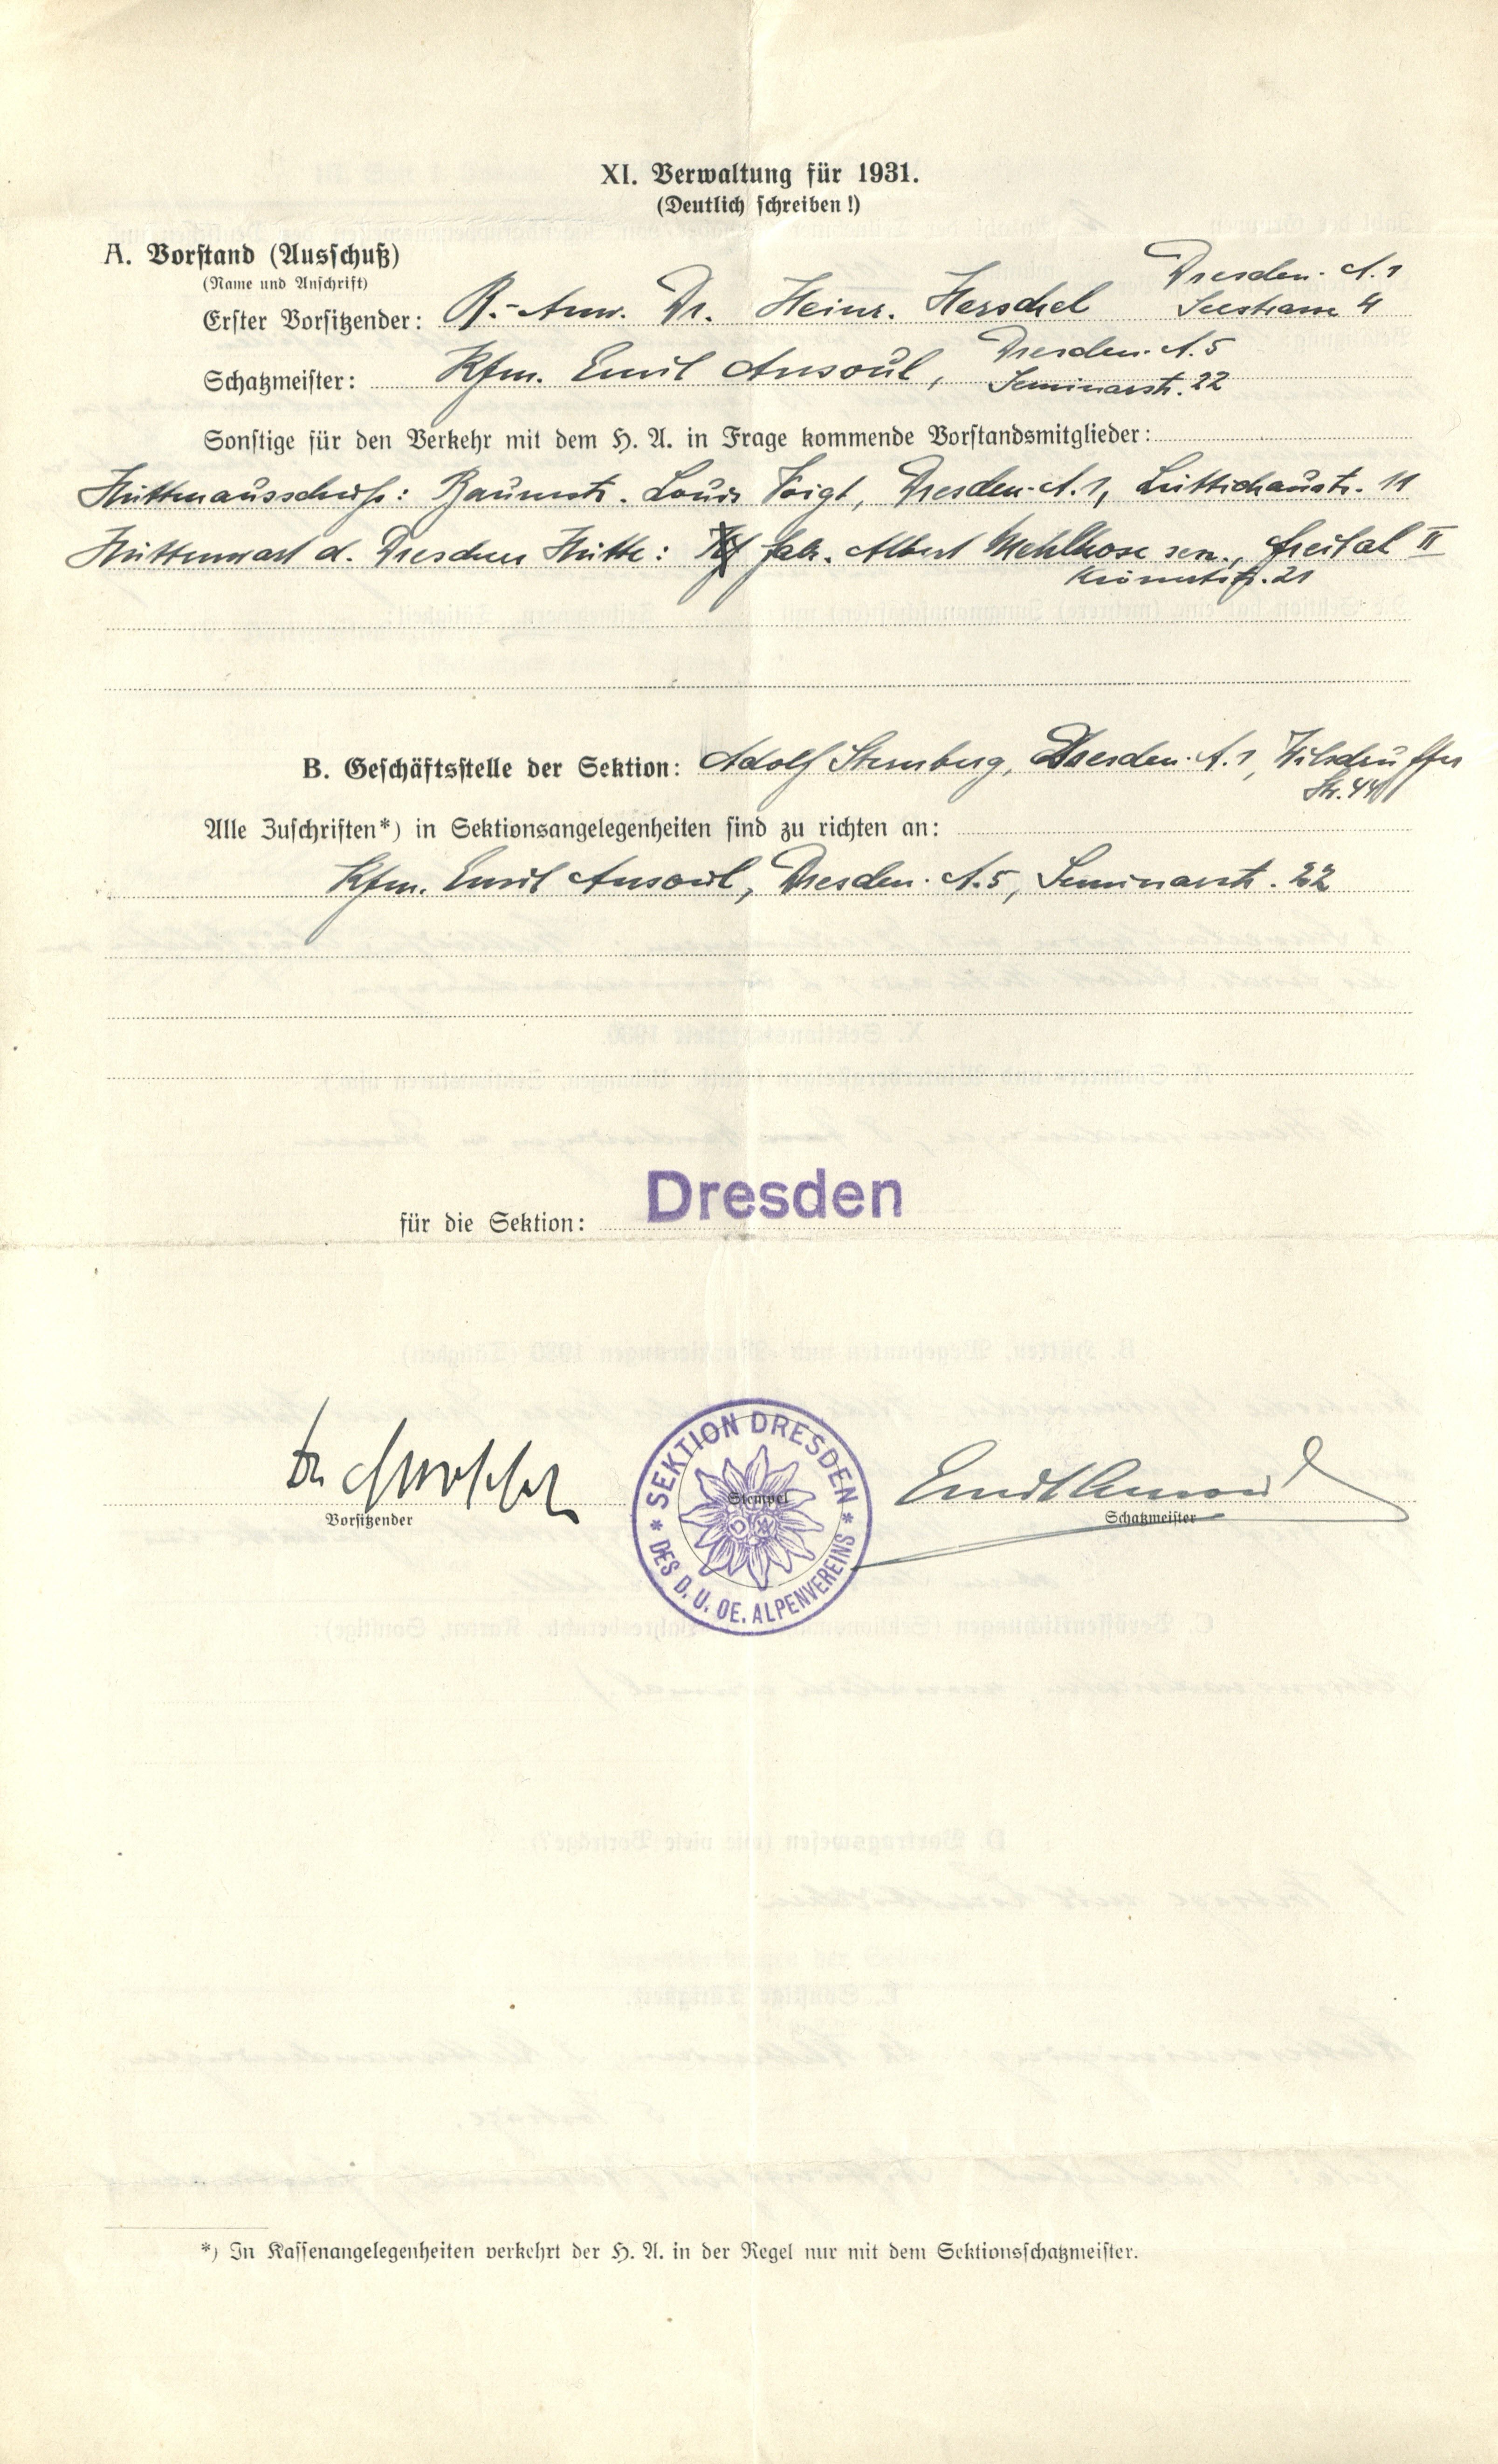 XI. Verwaltung für 1931.
(Deutlich schreiben!)
A. Vorstand (Ausschuß)
(Name und Anschrift)
Erster Vorsitzender: R.-Anw. Dr. Heinr. Herschel Dresden-A. 1
Seestrasse 4
Schatzmeister: Kfm. Emil Ansoul, Dresden-A. 5
Seminarstr. 22
Sonstige für den Verkehr mit dem H. A. in Frage kommende Vorstandsmitglieder:
Hüttenausschuß: Baumstr. Louis Voigt, Dresden-A. 1, Lüttichaustr. 11
Hüttenwart d. Dresdner Hütte: Fabr. Albert Mehlhose sen., Freital II
B. Geschäftsstelle der Sektion: Adolf Sternberg, Dresden-A. 1, Wilsdruffer
Str. 44
Alle Zuschriften*) in Sektionsangelegenheiten sind zu richten an:
Kfm. Emil Ansoul, Dresden-A. 5, Seminarstr. 22
für die Sektion: Dresden
Dr Herschel
Vorsitzender
SEKTION DRESDEN
* DES D. U. OE. ALPENVEREINS *
Stempel
Emil Ansoul
Schatzmeister
*) In Kassenangelegenheiten verkehrt der H. A. in der Regel nur mit dem Sektionsschatzmeister.